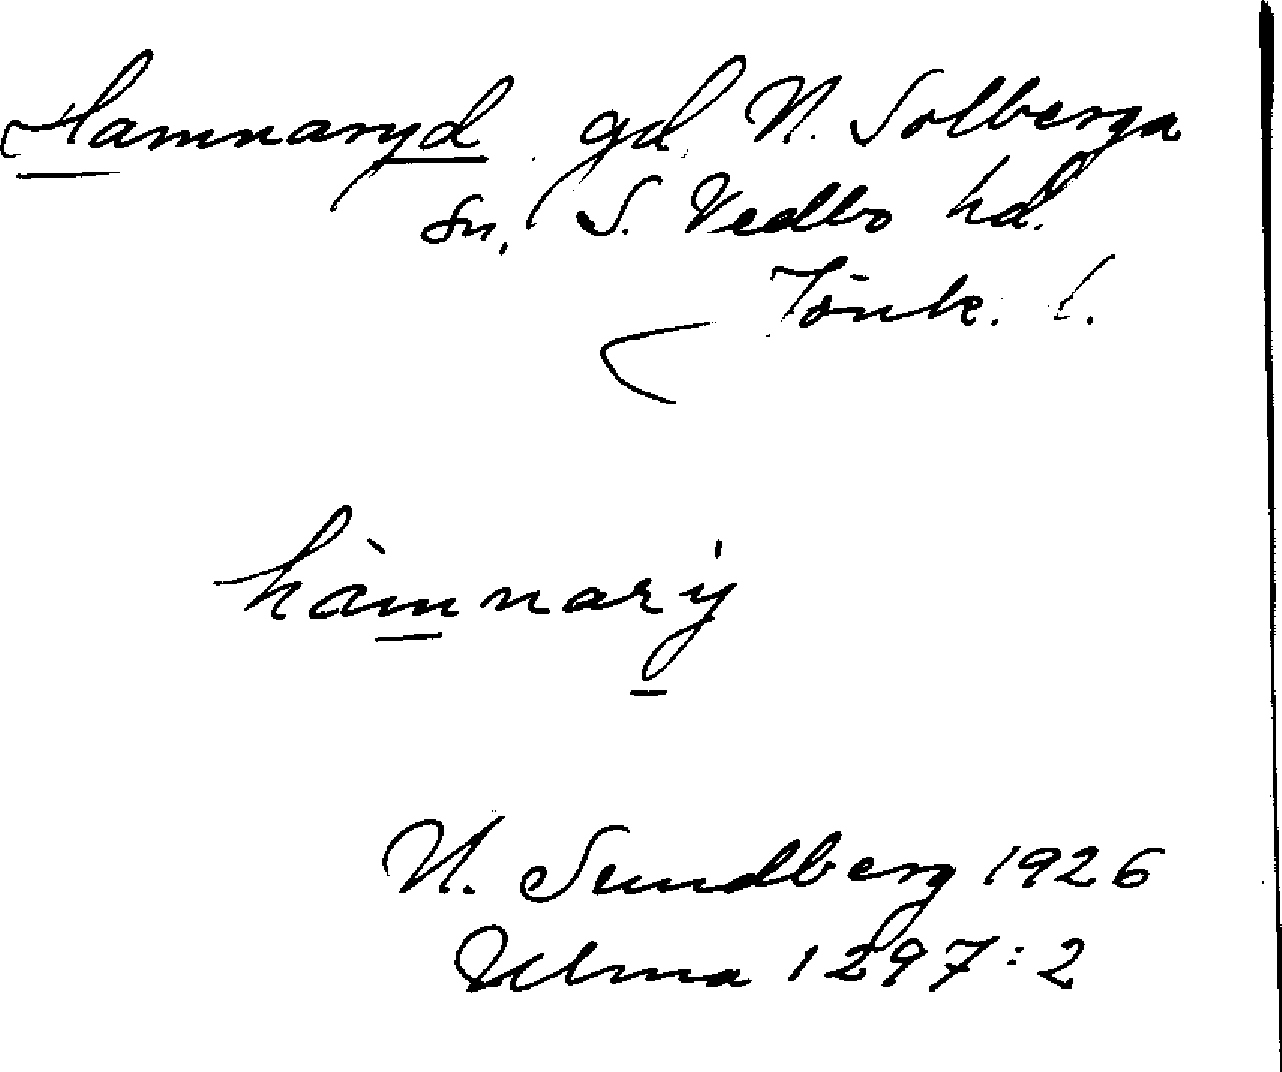 Hamnaryd gd, N. Solberga
sn, S. Vedbo hd.
Jönk. l.
hàmnarẏ
N. Sundberg 1926
Ulma 1297:2